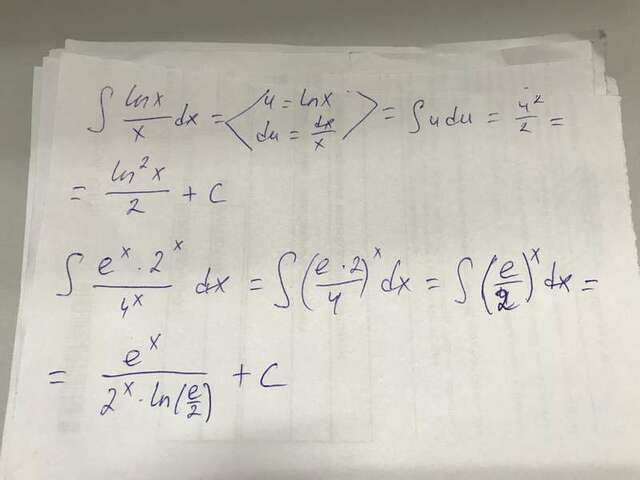 ∫ lnx/x dx = < u = lnx du = dx/x > = ∫ u du = u²/2 =
= ln²x/2 + C
∫ (eˣ · 2ˣ)/4ˣ dx = ∫ (e · 2/4)ˣ dx = ∫ (e/2)ˣ dx =
= eˣ/(2ˣ · ln(e/2)) + C